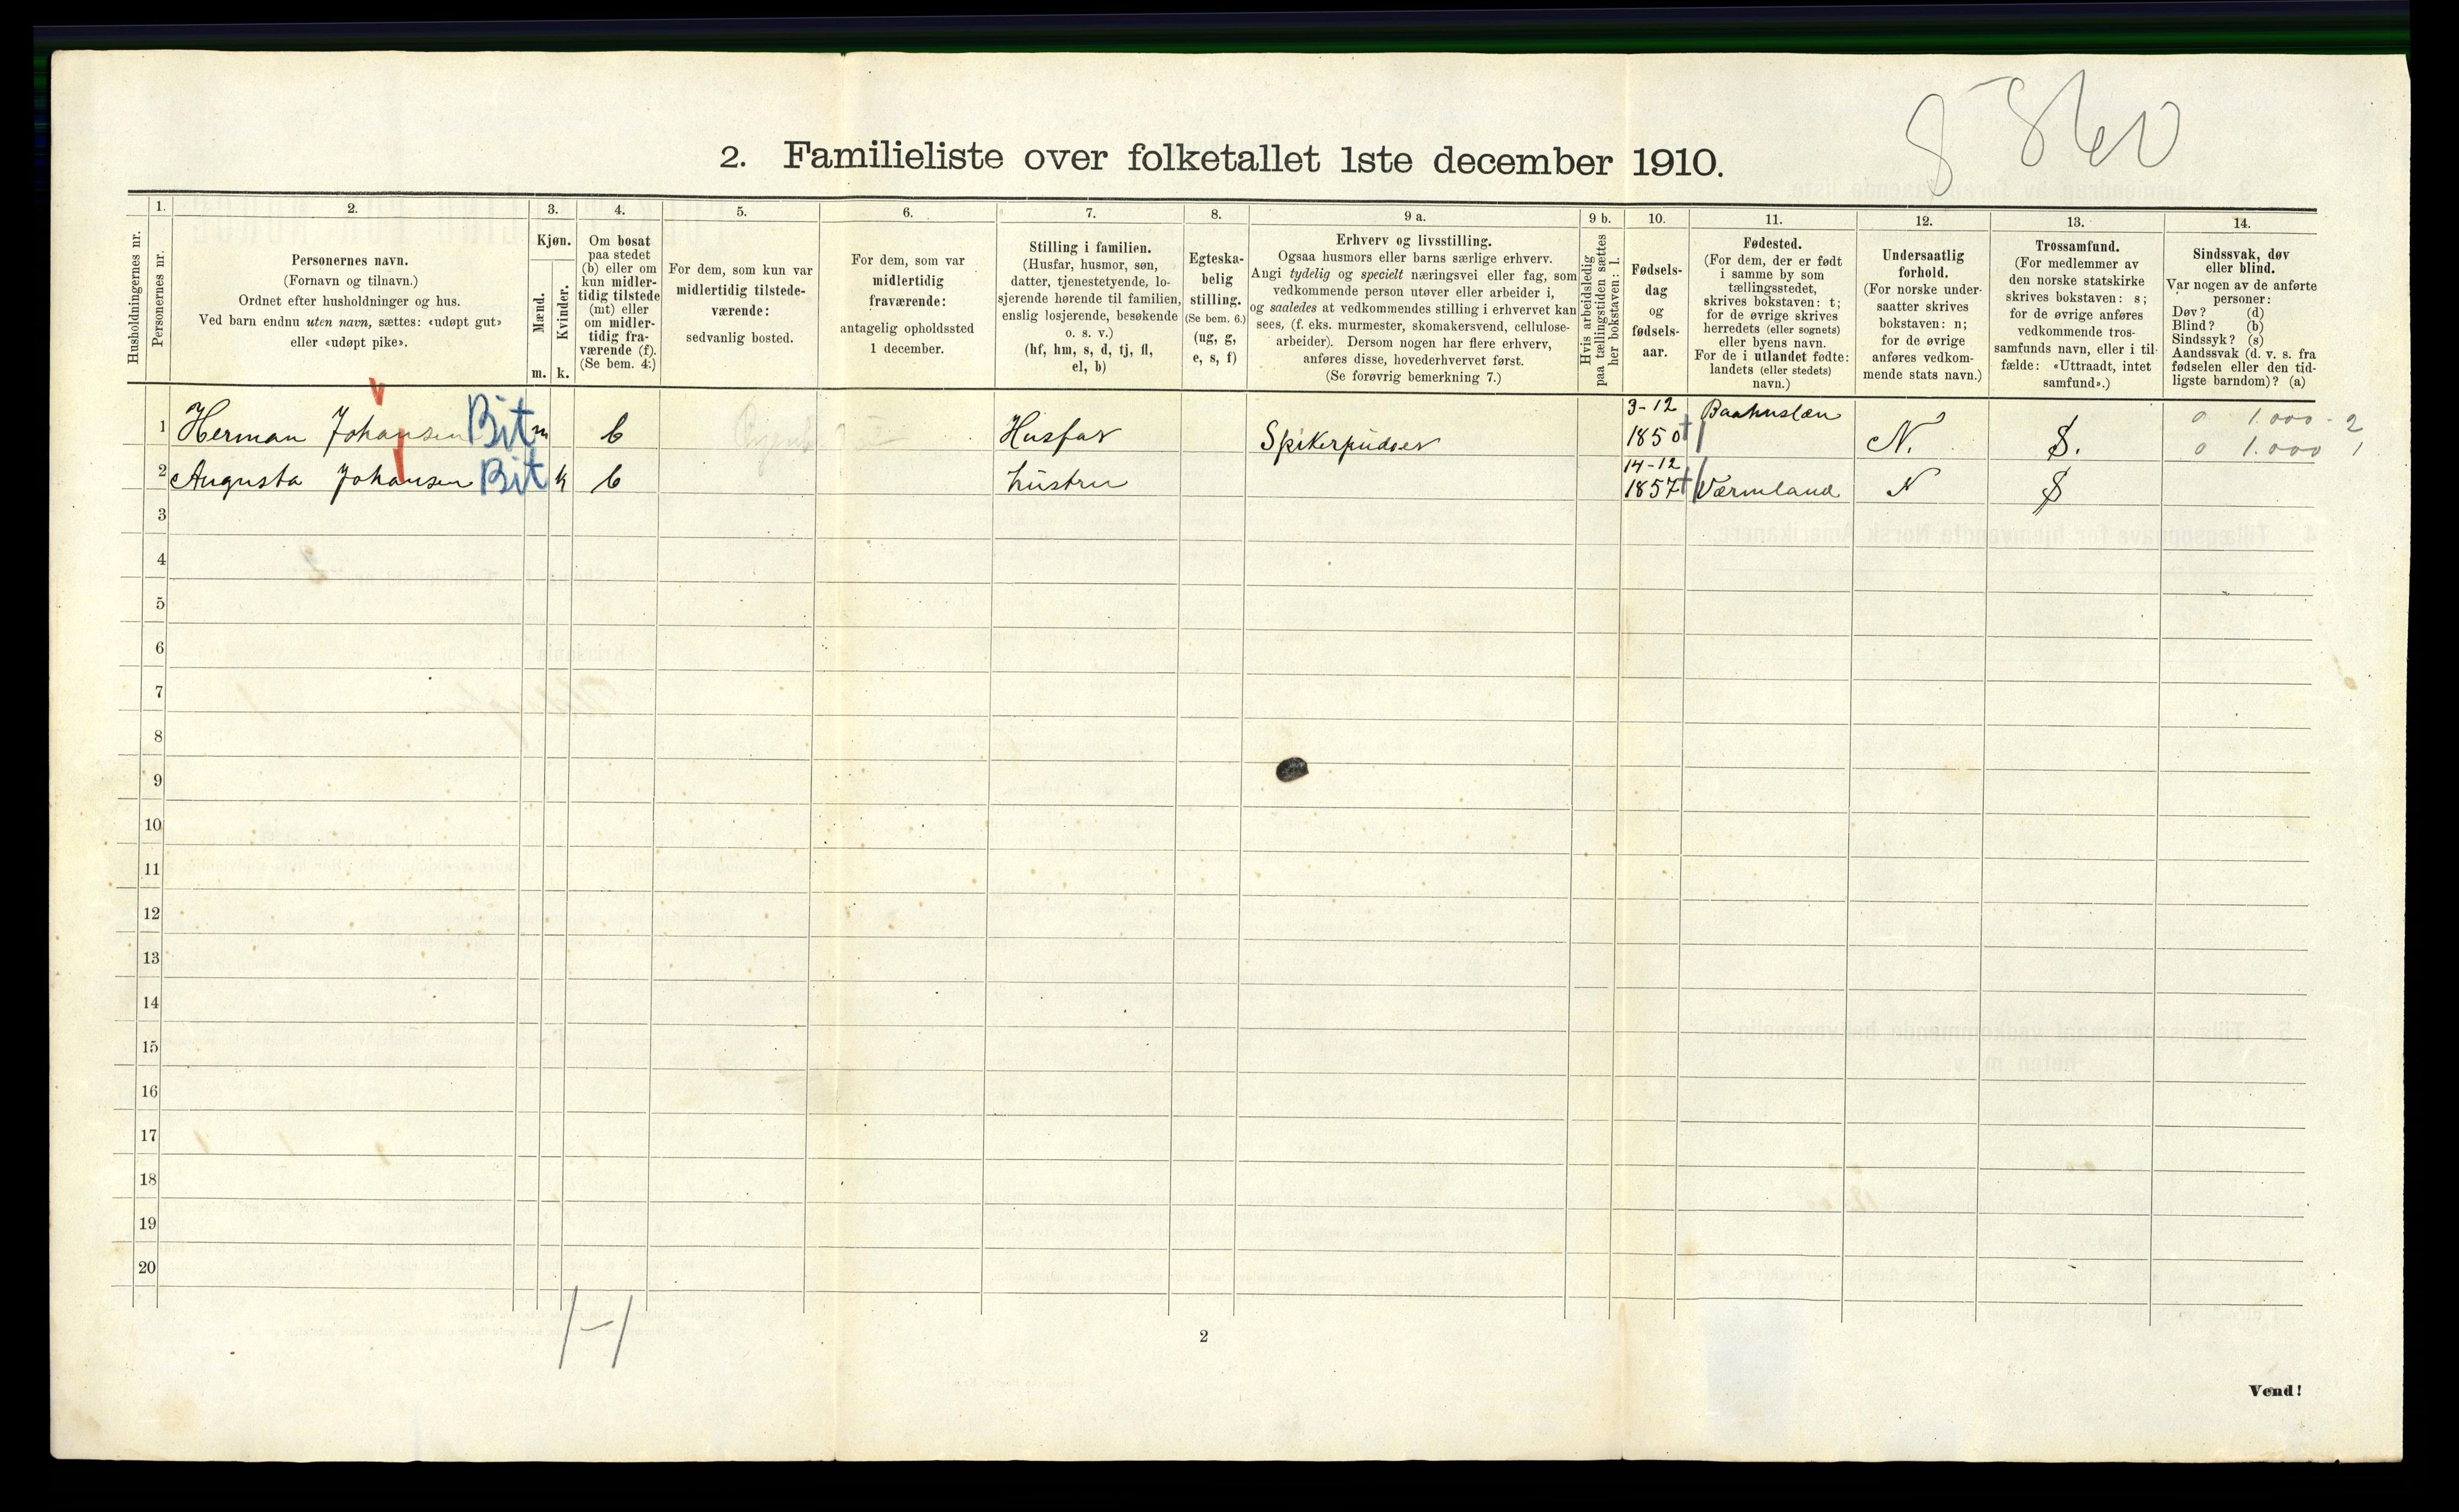 8860
2. Familieliste over folketallet 1ste december 1910.
Husholdningernes nr.
1.
Personernes nr.
2.
Personernes navn.
(Fornavn og tilnavn.)
Ordnet efter husholdninger og hus.
Ved barn endnu uten navn, sættes: «udøpt gut»
eller «udøpt pike».
3.
Kjøn.
Mænd.
m.
Kvinder.
k.
4.
Om bosat
paa stedet
(b) eller om
kun midler-
tidig tilstede
(mt) eller
om midler-
tidig fra-
værende (f).
(Se bem. 4.)
5.
For dem, som kun var
midlertidig tilstede-
værende:
sedvanlig bosted.
6.
For dem, som var
midlertidig
fraværende:
antagelig opholdssted
1 december.
7.
Stilling i familien.
(Husfar, husmor, søn,
datter, tjenestetyende, lo-
sjerende hørende til familien,
enslig losjerende, besøkende
o. s. v.)
(hf, hm, s, d, tj, fl,
el, b)
8.
Egteska-
belig
stilling.
(Se bem. 6.)
(ug, g,
e, s, f)
9 a.
Erhverv og livsstilling.
Ogsaa husmors eller barns særlige erhverv.
Angi tydelig og specielt næringsvei eller fag, som
vedkommende person utøver eller arbeider i,
og saaledes at vedkommendes stilling i erhvervet kan
sees, (f. eks. murmester, skomakersvend, cellulose-
arbeider). Dersom nogen har flere erhverv,
anføres disse, hovederhvervet først.
(Se forøvrig bemerkning 7.)
9 b.
Hvis arbeidsledig
paa tællingstiden sættes
her bokstaven: l.
10.
Fødsels-
dag
og
fødsels-
aar.
11.
Fødested.
(For dem, der er født
i samme by som
tællingsstedet,
skrives bokstaven: t;
for de øvrige skrives
herredets (eller sognets)
eller byens navn.
For de i utlandet fødte:
landets (eller stedets)
navn.)
12.
Undersaatlig
forhold.
(For norske under-
saatter skrives
bokstaven: n;
for de øvrige
anføres vedkom-
mende stats navn.)
13.
Trossamfund.
(For medlemmer av
den norske statskirke
skrives bokstaven: s;
for de øvrige anføres
vedkommende tros-
samfunds navn, eller i til-
fælde: «Uttraadt, intet
samfund».)
14.
Sindssvak, døv
eller blind.
Var nogen av de anførte
personer:
Døv? (d)
Blind? (b)
Sindssyk? (s)
Aandssvak (d. v. s. fra
fødselen eller den tid-
ligste barndom)? (a)
1 Herman Johansen Bit m b Husfar Spikerpudser 3-12 1850 Baahuslæn N. S. 0 1.000 - 2
0 1.000 1
2 Augusta Johansen Bit k b hustru 14-12 1857 Værmland N S
3
4
5
6
7
8
9
10
11
12
13
14
15
16
17
18
19
20
1-1
2
Vend!